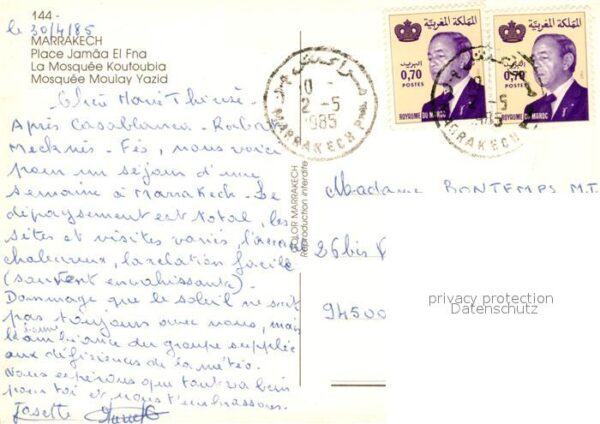 144 -
le 30/4/85
MARRAKECH
Place Jamâa El Fna
La Mosquée Koutoubia
Mosquée Moulay Yazid
Chère Marie Thérèse
Après Casablanca - Rabat
Mecknès - Fés, nous voici
pour un séjour d'une
semaine à Marrakech. Le
dépaysement est total, les
sites et visites variés, l'accueil
chaleureux, la relation facile
(souvent envahissante).
Dommage que le soleil ne soit
pas toujours avec nous, mais
l'ambiance du groupe supplée
aux déficiences de la météo.
Nous espérons que tout va bien
pour toi et nous t'embrassons.
Josette
COLOR MARRAKECH
Reproduction interdite
مراكش
MARRAKECH
2-5
1985
المملكة المغربية
البريد
0,70
POSTES
ROYAUME DU MAROC
المملكة المغربية
البريد
0,70
POSTES
ROYAUME DU MAROC
2-5
1985
MARRAKECH
Madame BONTEMPS M.T.
26 bis
94500
privacy protection
Datenschutz